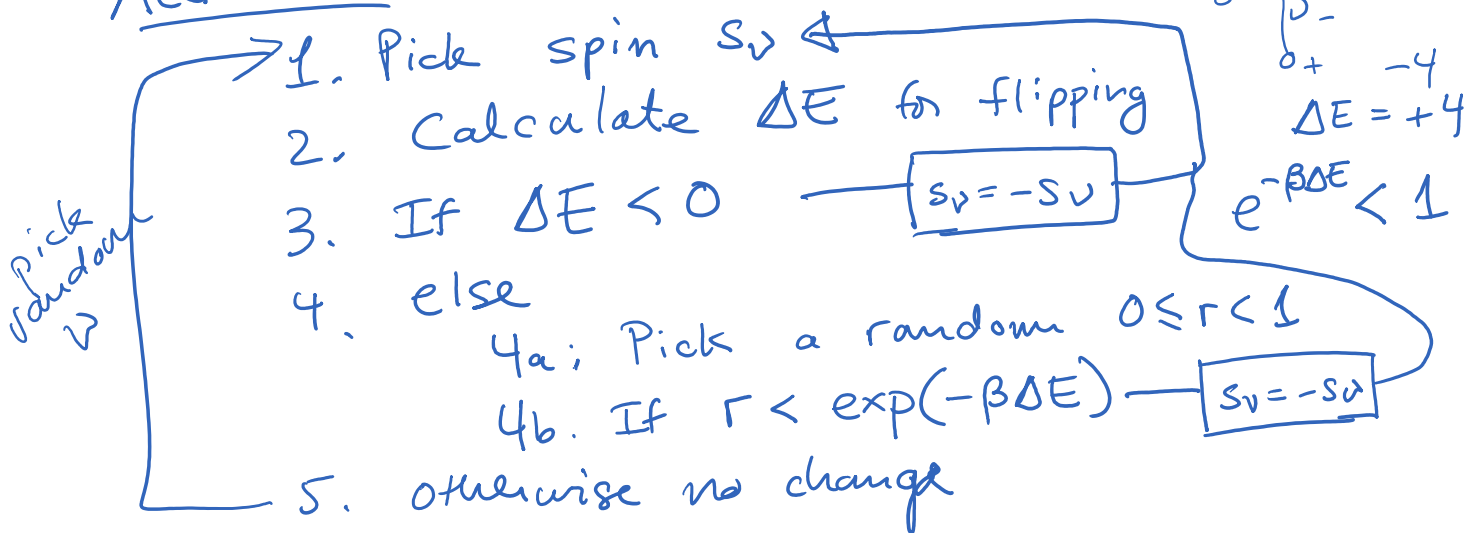 1. Pick spin sν
2. Calculate ΔE for flipping
3. If ΔE < 0 sν = -sν
4. else
4a; Pick a random 0 ≤ r < 1
4b. If r < exp(-βΔE) sν = -sν
5. otherwise no change
pick
random
ν
-
o+ -4
ΔE = +4
e^-βΔE < 1